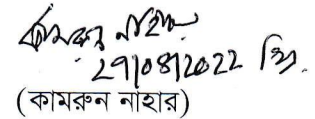 কামরুন নাহার
29/08/2022 খ্রি.
(কামরুন নাহার)